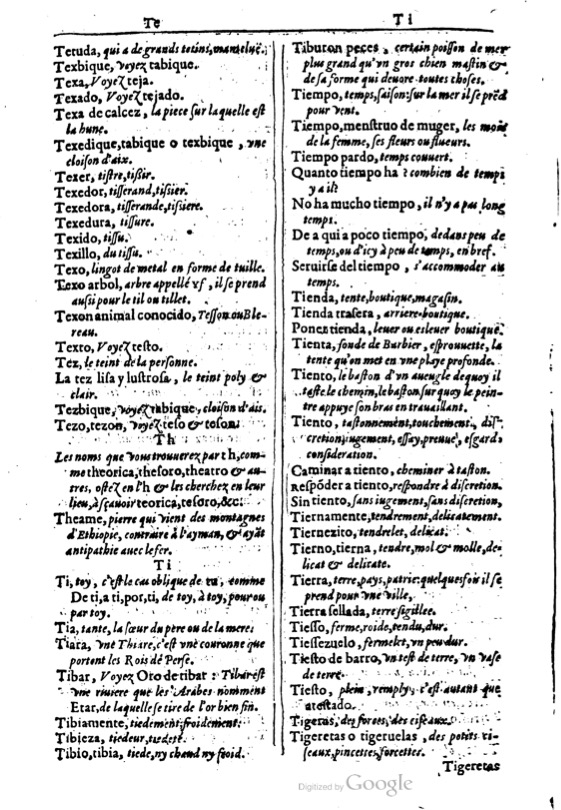 Te
Tetuda, qui a de grands tetins, mameluë.
Texbique, voyez tabique.
Texa, Voyez teja.
Texado, Voyez tejado.
Texa de calcez, la piece sur laquelle est
la hune.
Texedique, tabique o texbique, vne
cloison d'aix.
Texer, tistre, tissir.
Texedor, tisserand, tissier.
Texedora, tisserande, tissiere.
Texedura, tissure.
Texido, tissu.
Texillo, du tissu.
Texo, lingot de metal en forme de tuille.
Texo arbol, arbre appellé yf, il se prend
aussi pour le til ou tillet.
Texon animal conocido, Tesson ou Ble-
reau.
Texto, Voyez testo.
Tez, le teint de la personne.
La tez lisa y lustrosa, le teint poly &
clair.
Tezbique, voyez tabique, cloison d'ais.
Tezo, tezon, voyez teso & teson.
Th
Les noms que vous trouuerez par th, com-
me theorica, thesoro, theatro & au-
tres, ostez en l'h & les cherchez en leur
lieu, à sçauoir teorica, tesoro, &c.
Theame, pierre qui vient des montagnes
d'Ethiopie, contraire à l'ayman, & ayāt
antipathie auec le fer.
Ti
Ti, toy, c'est le cas oblique de tu, comme
De ti, a ti, por, ti, de toy, à toy, pour ou
par toy.
Tia, tante, la sœur du pere ou de la mere.
Tiara, vne Thiare, c'est vne couronne que
portent les Rois de Perse.
Tibar, Voyez Oro de tibar: Tibar est
vne riuiere que les Arabes nomment
Etar, de laquelle se tire de l'or bien fin.
Tibiamente, tiedement, froidement.
Tibieza, tiedeur, tiedeté.
Tibio, tibia, tiede, ny chaud ny froid.
Ti
Tiburon peces, certain poisson de mer
plus grand qu'vn gros chien mastin &
de sa forme qui deuore toutes choses.
Tiempo, temps, saison: sur la mer il se prēd
pour vent.
Tiempo, menstruo de muger, les mois
de la femme, ses fleurs ou flueurs.
Tiempo pardo, temps couuert.
Quanto tiempo ha? combien de temps
y a il?
No ha mucho tiempo, il n'y a pas long
temps.
De a qui a poco tiempo, dedans peu de
temps, ou d'icy à peu de temps, en bref.
Seruirse del tiempo, s'accommoder au
temps.
Tienda, tente, boutique, magasin.
Tienda trasera, arriere-boutique.
Poner tienda, leuer ou esleuer boutique.
Tienta, sonde de Barbier, esprouuette, la
tente qu'on met en vne playe profonde.
Tiento, le baston d'vn aueugle dequoy il
taste le chemin, le baston sur quoy le pein-
tre appuye son bras en trauaillant.
Tiento, tastonnement, touchement, dis-
cretion, iugement, essay, preuue, esgard,
consideration.
Caminar a tiento, cheminer à taston.
Respōder a tiento, respondre à discretion.
Sin tiento, sans iugement, sans discretion,
Tiernamente, tendrement, delicatement.
Tiernezito, tendrelet, delicat.
Tierno, tierna, tendre, mol & molle, de-
licat & delicate.
Tierra, terre, pays, patrie: quelquesfois il se
prend pour vne ville,
Tierra sellada, terre sigillee.
Tiesso, ferme, roide, tendu, dur.
Tiessezuelo, fermelet, vn peu dur.
Tiesto de barro, vn test de terre, vn vase
de terre.
Tiesto, plein, remply, c'est autant que
atestado.
Tigeras, des forces, des ciseaux.
Tigeretas o tigeruelas, des petits ci-
seaux, pincettes, forcettes.
Tigeretas
Digitized by Google